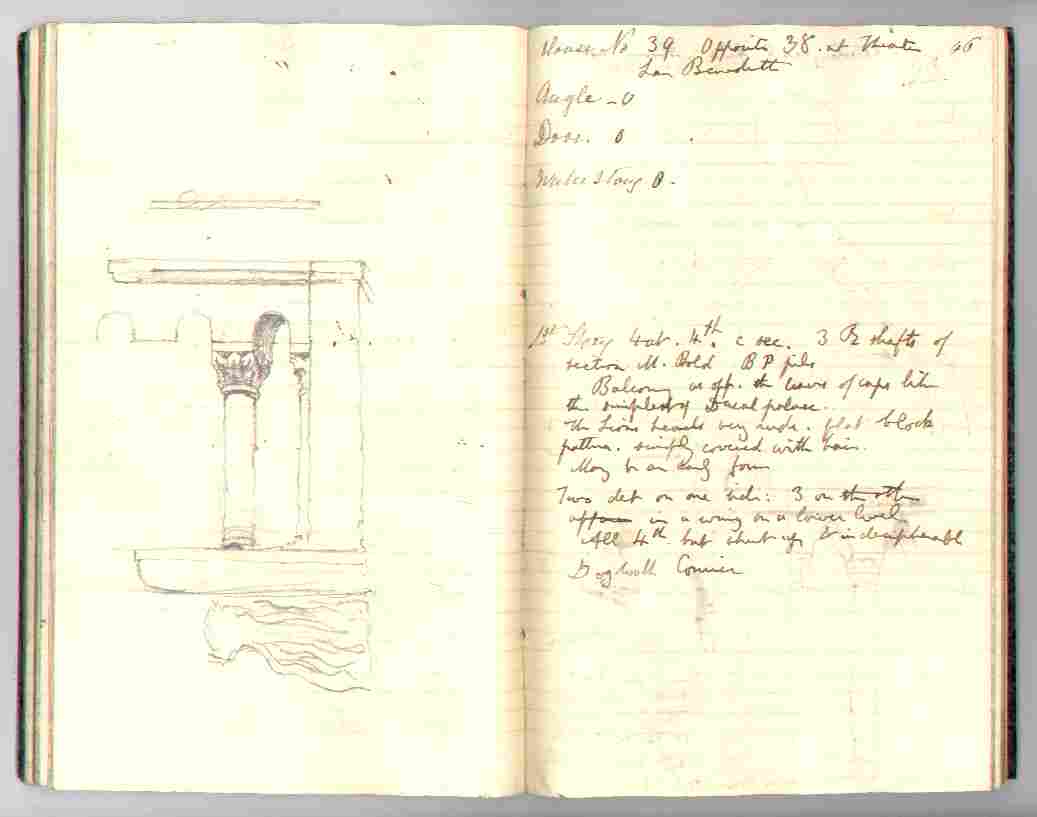 House No 39 Opposite 38. at Theatre 66
San Benedetto
Angle - 0
Door. 0
Water Story 0.
1st Story 4 at. 4th. c sec. 3 R shafts of
section M. Bold B P pils
Balcony as opp. the leaves of caps like
the simplest of Ducal palace.
The Lions heads very rude. flat block
pattern. simply covered with hair.
May be an early form
Two det on one side: 3 on the other
in a wing on a lower level
All 4th but shut up & indecipherable
Dogtooth Cornice